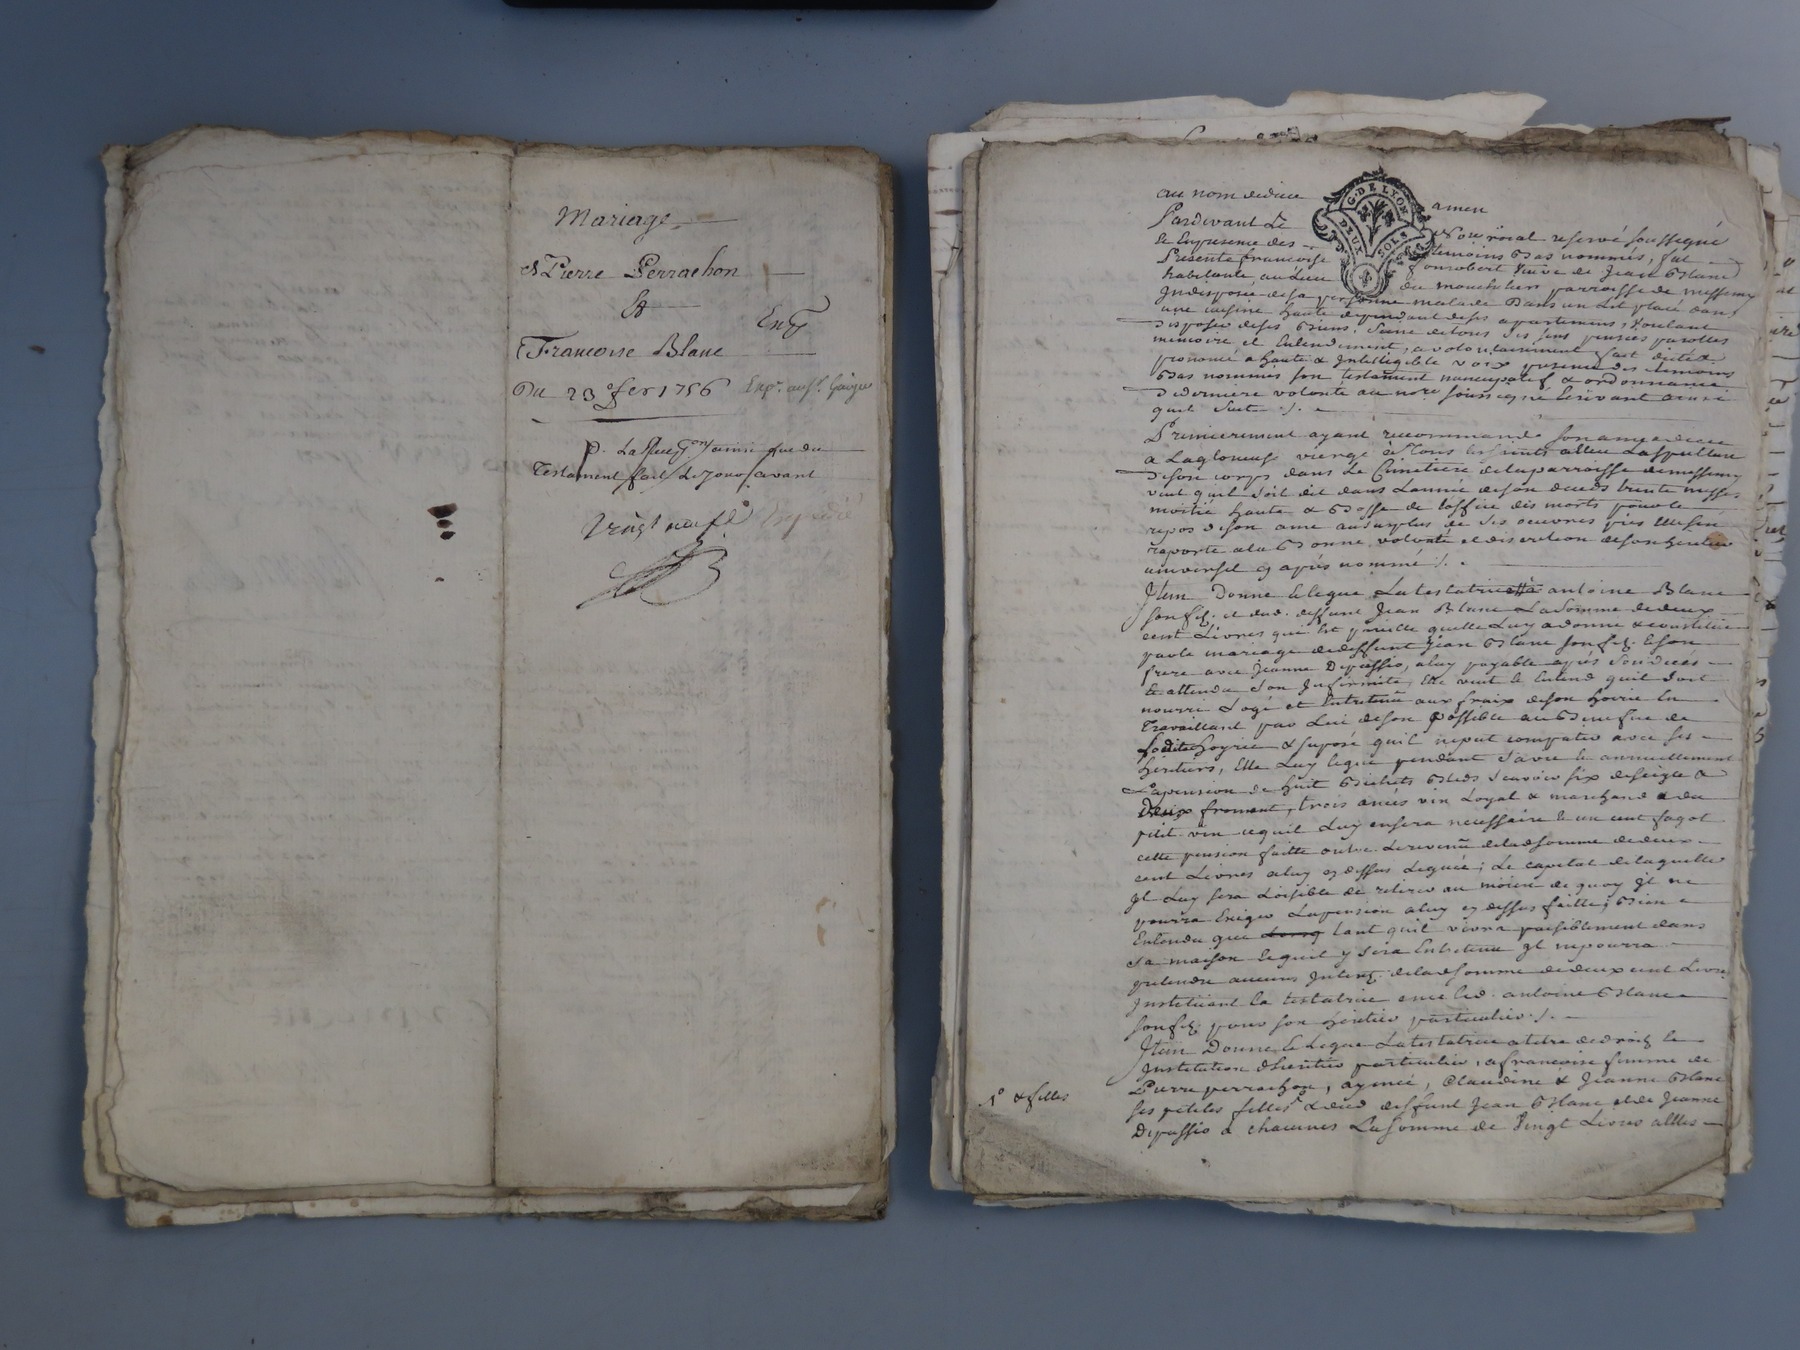 Mariage
Pierre Perrachon
&
Francoise Blanc
Du 23 fer 1756
Testament fait le jour avant
vingt neuf
au nom de dieu amen
G. DE LYON
DEUX SOLS
Pardevant Le Nore roial reservé soussigné
Le En presence des temoins Bas nommés, fut
Presente francoise fonrobert veuve de Jean Blanc
habitante au Lieu du monchelier parroisse de messimy
Indisposée de sa personne malade Dans un Lit placé dans
une cuisine haute dependant de ses apartemens, voulant
disposer de ses Biens, saine de tous ses sens pensées parolles
memoire et Entendement, a volontairement fait dicté &
prononcé a haute & Intelligible voix presence des temoins
Bas nommés son testament nuncupatif & ordonnance
de derniere volonté au nore soussigné Ecrivant comme
quil suit ./.
Premierement ayant recommandé son ame a dieu
a La glorieuse vierge à Tous les saints allieu La sepulture
de son corps dans Le Cimetière de la parroisse de messimy
veut quil soit dit dans Lannée de son deceds trente messes
moitié haute & Basse de loffice des morts pour le
repos de son ame au surplus de ses oeuvres pies Elle sen
raporte a la Bonne volonté et discretion de son heritier
universel cy après nommé ./.
Item Donne & legue La testatrice à antoine Blanc
son fs. et dud. deffunt Jean Blanc La somme de deux
cent Livres qui Est pareille quelle Luy a donné & constitué
par le mariage de deffunt Jean Blanc son fs. & son
frere avec Jeanne Depassio, a luy payable après son deces
& attendu son Infirmité, Elle veut & Entend quil soit
nourri Logé et Entretenu aux fraix de son hoirie En
Travaillant par Lui de son Possible au Benefice de
Ladite hoyrie & suposé quil neput compatir avec ses
heritiers, Elle Luy legue pendant sa vie & annuellement
La pension de huit Bichets Bleds scavoir six de seigle &
Deux froment, trois anées vin Loyal & marchand & du
petit vin ce quil Luy en sera necessaire & un cent fagot
cette pension faitte outre Le revenu de lad somme de deux
cent Livres a luy cy dessus Leguée; Le capital de laquelle
Il Luy sera Loisible de retirer au moien de quoy Il ne
pourra Exiger La pension a luy cy dessus faitte; Bien
Entendu que tant quil vivra paisiblement dans
sa maison & quil y sera Entretenu Il ne pourra
pretendre aucuns Interets de lad somme de deux cent Livres
Instituant la testatrice en ce led. antoine Blanc
son fs. pour son heritier particulier ./.
Item Donne & Legue La testatrice a titre de droit &
Institution dheritier particulier, a francoise femme de
Pierre perrachon, aymée, Claudine & Jeanne Blanc
ses petites filles & dud deffunt Jean Blanc et de Jeanne
Depassio a chacunes La somme de Vingt Livres a Elles
1° & filles